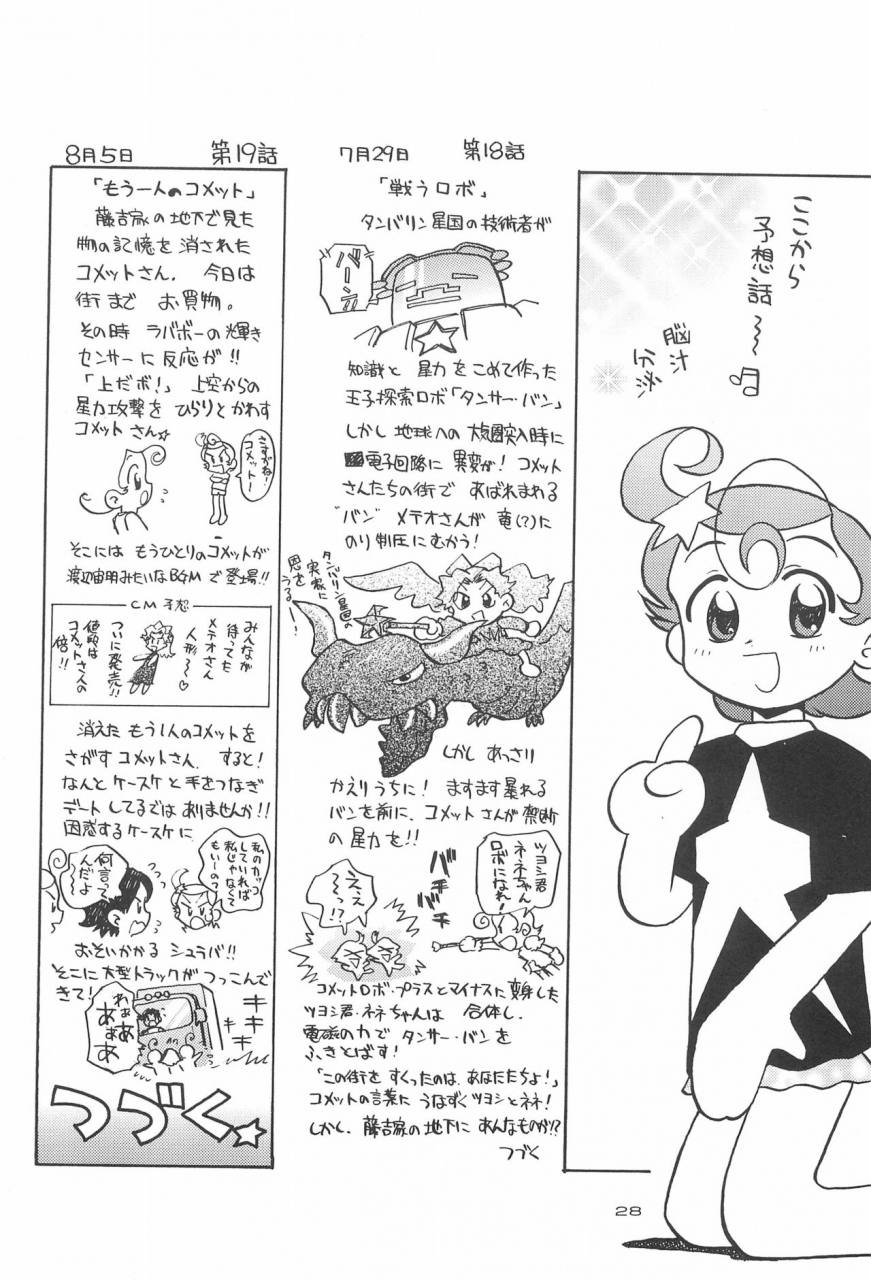 ここから
予想話〜〜♪
脳汁
分泌
7月29日 第18話
「戦うロボ」
タンバリン星国の技術者が
バーン
知識と 星力をこめて作った
王子探索ロボ「タンサー・バン」
しかし 地球への 大気圏突入時に
電子回路に 異変が! コメット
さんたちの街で あばれまわる
"バン" メテオさんが 竜(?)た
のり制圧にむかう!
タンバリン星国の
実家に
恩をうる—!
しかし あっさり
かえりうちに! ますます暴れる
バンを前に、コメットさんが禁断
の星力を!!
ツヨシ君
ネネちゃん
ロボになれ!
バチバチ
ええええ
〜っ!?
コメットロボ・プラスとマイナスに変身した
ツヨシ君・ネネちゃんは 合体し、
電磁の力で タンサー・バンを
ふきとばす!
「この街を すくったのは、あなたたちよ!」
コメットの言葉に うなずくツヨシとネネ!
しかし、藤吉家の地下に あんなものが!?
つづく
8月5日 第19話
「もう一人のコメット」
藤吉家の地下で見た
物の記憶を消された
コメットさん. 今日は
街まで お買物。
その時 ラバボーの輝き
センサーに反応が!!
「上だボ!」 上空からの
星力攻撃を ひらりとかわす
コメットさん☆
さすがね!
コメット!
そこには もうひとりのコメットが
渡辺宙明みたいなBGMで登場!!
CM予想
みんなが
待ってた
メテオさん
人形〜♡
ついに発売!!
値段は
コメットさんの
倍!!
消えた もう1人のコメットを
さがすコメットさん. すると!
なんと ケースケと手をつなぎ
デートしてるではありませんか!!
困惑するケースケに
私のカッコ
していれば
私じゃなくて
もいーの?
何言って
んだよ
おそいかかる シュラバ!!
そこに大型トラックが つっこんで
きて!
キキキキ
わぁぁ
あぁぁ
あぁ
つづく☆
28